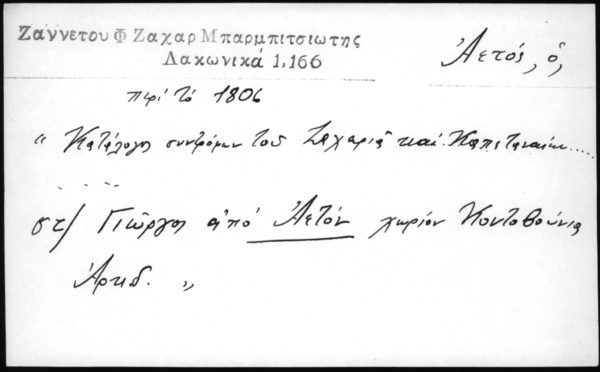 Ζαννετου Φ Ζαχαρ Μπαρμπιτσιωτης
Λακωνικά 1,166
Ἀετός, ὁ,
περί τό 1806
“ Κατάλογος συντρόμων τοῦ Ζαχαριᾶ καί Καπεταναίων.....
.....
στ/ Γιῶργος ἀπό Ἀετόν χωρίον Κοντοβούνια
Ἀρκαδ. „